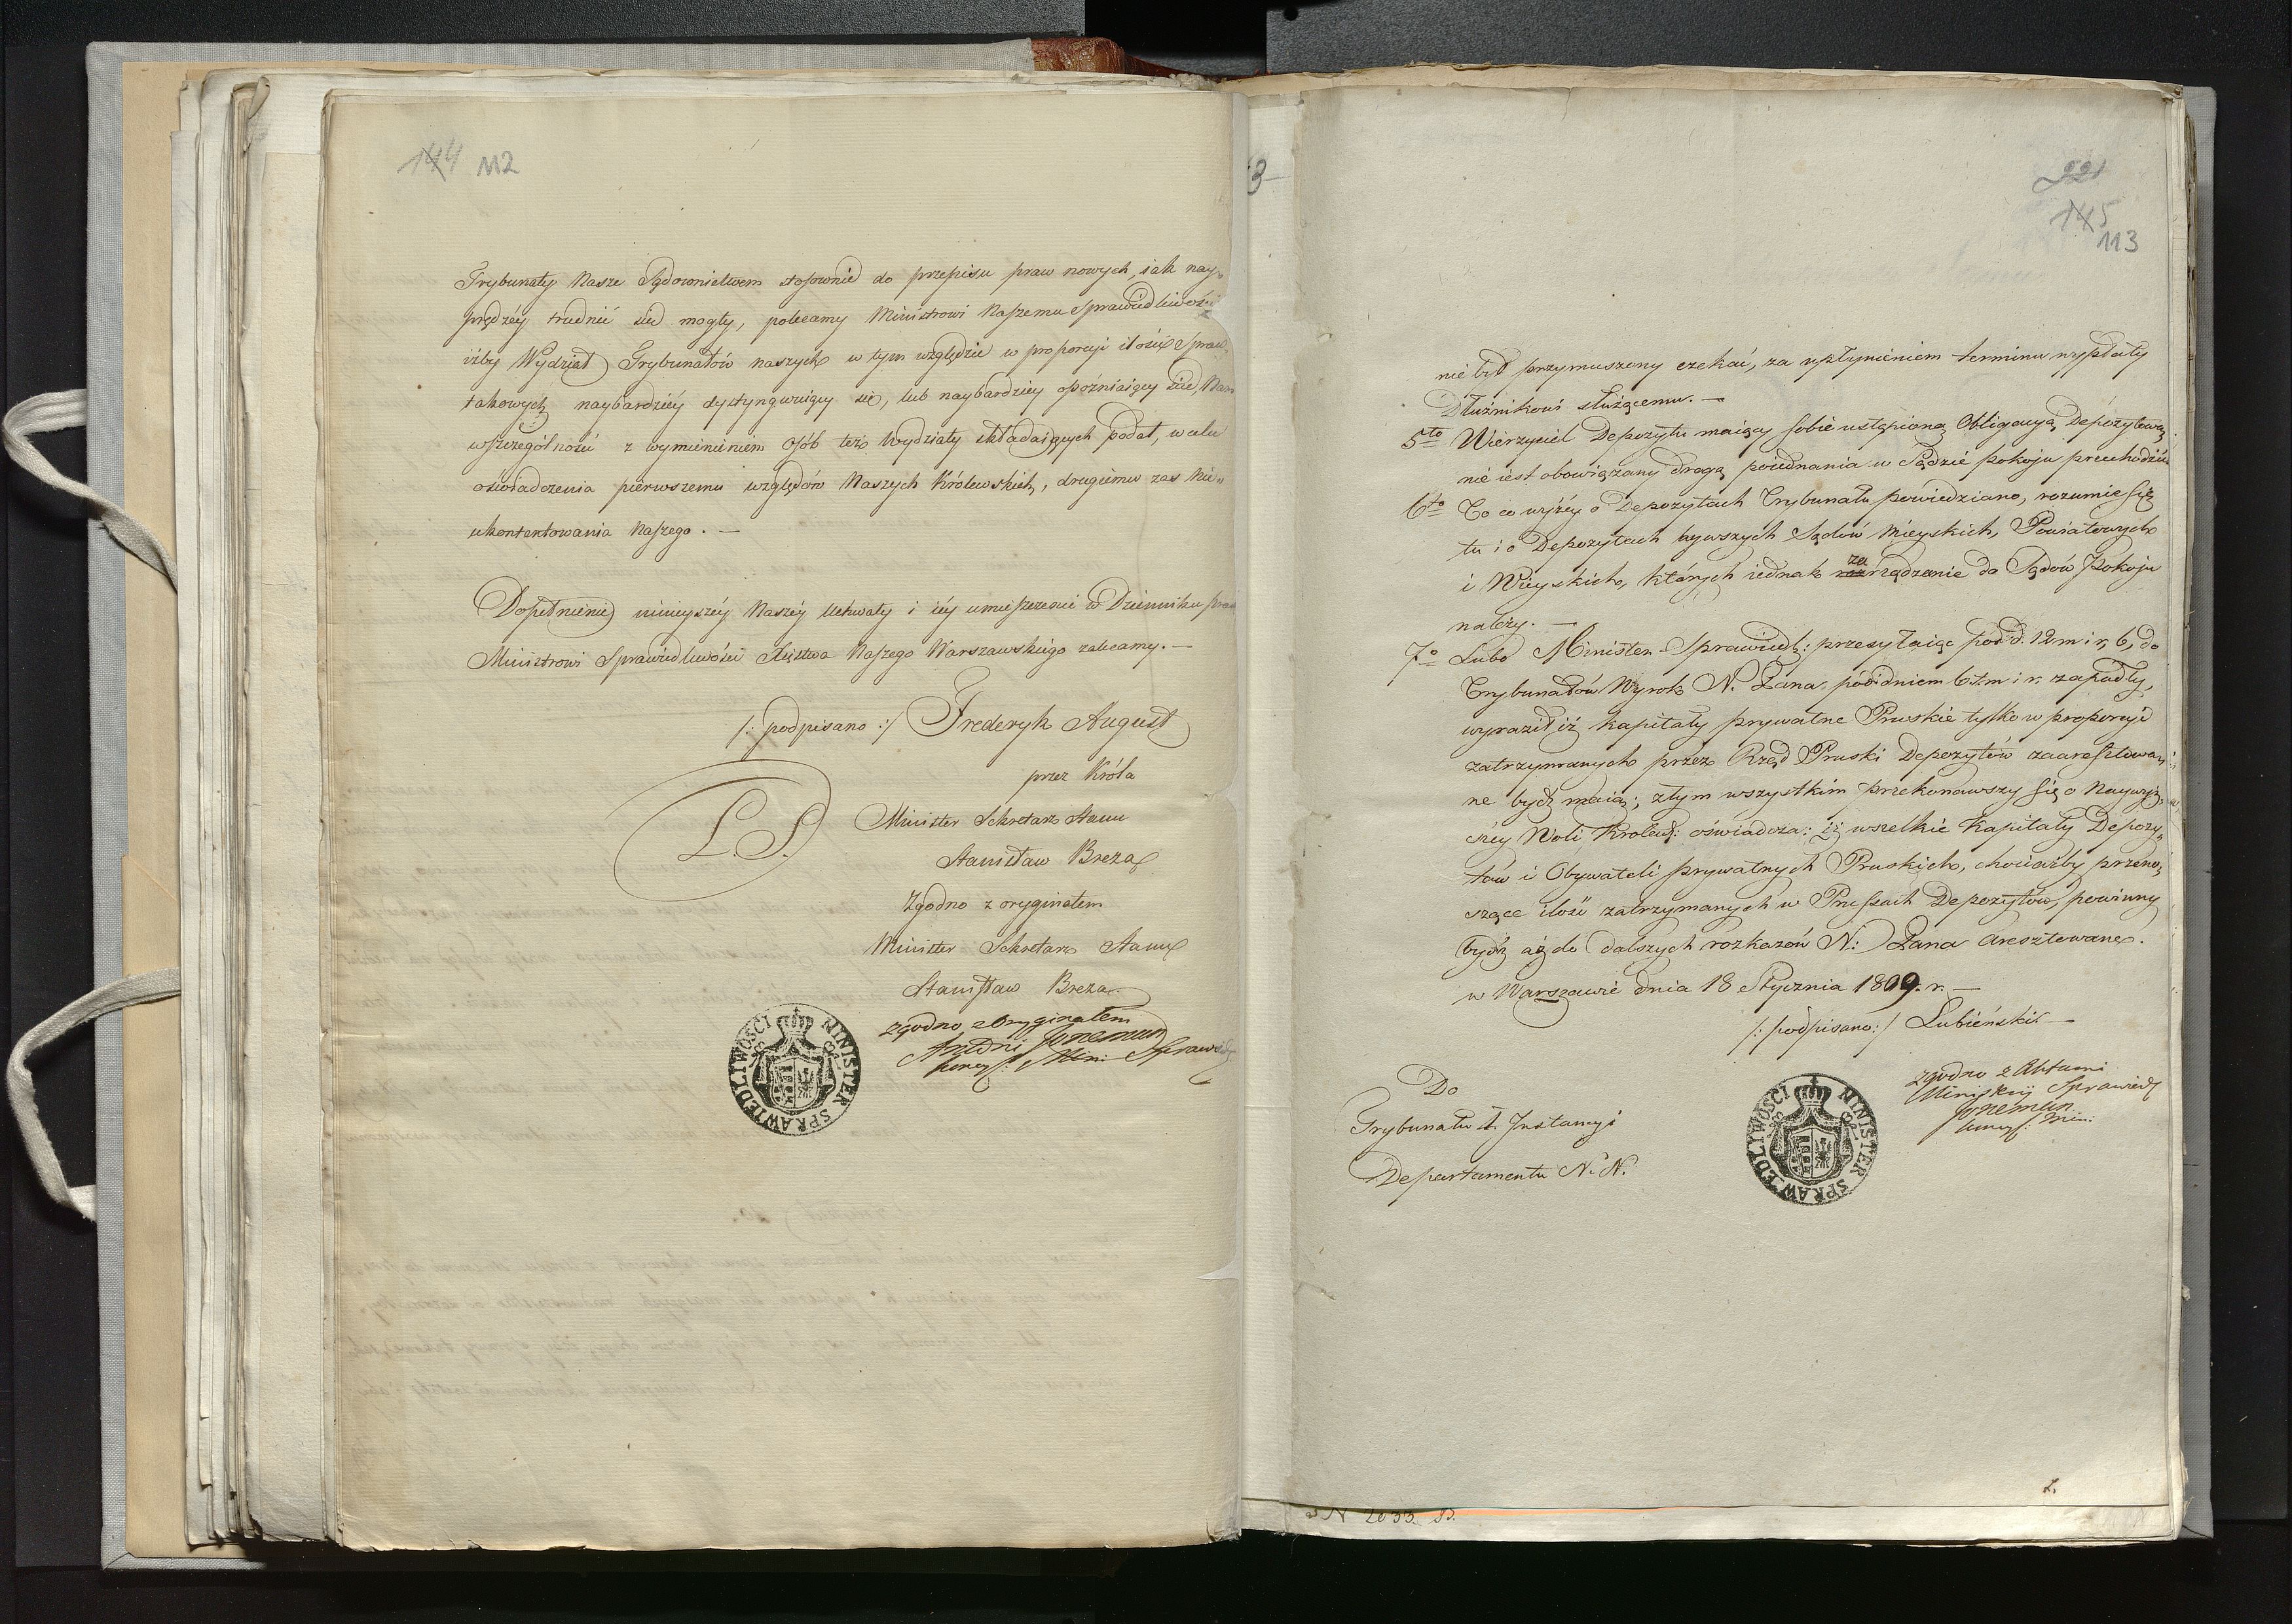 144 112
Trybunały Nasze Sądownictwem stosownie do przepisu praw nowych, iak nay„
prędzéy trudnić sié mogły, polecamy Ministrowi Naszemu Sprawiedliwości
iżby Wydział Trybunałów naszych w tym względzie w proporcyi ilości Spraw
takowych naybardziéy dystyngwuiący się, lub naybardziey opóźniaiący sié, Nam
wszczególności z wymienieniem osób też Wydziały składaiących podał, w celu
oświadczenia pierwszemu względów Naszych Królewskich, drugiemu zas Nie„
ukontentowania Naszego. —
Dopełnienie ninieyszéy Naszéy Uchwały i iéy umieszczenie w Dzienniku praw
Ministrowi Sprawiedliwości Xięstwa Naszego Warszawskiego zalecamy. —
/: podpisano :/ Frederyk August
przez Króla
L. S.
Minister Sekretarz Stanu
Stanisław Breza
Zgodno z oryginałem
Minister Sekretarz Stanu
Stanisław Breza
zgodno z Oryginałem
Min: Sprawiedl:
MINISTER SPRAWIEDLIWOSCI
221
145
113
nie był przymuszony czekać, za upłynieniem terminu wypłaty
Dłużnikowi służącemu. —
5to Wierzyciel Depozytu maiący sobie ustąpioną Obligacyą Depozytową
nie iest obowiązany drogą poiednania w Sądzie pokoju przechodzić
6to Co co wyżéy o Depozytach Trybunału powiedziano, rozumie się
tu i o Depozytach bywszych Sądów Mieyskich, Powiatowych
i Wieyskich, których iednak zarządzanie do Sądów Pokoju
należy. —
7o Lubo Minister Sprawiedl: przesyłaiąc pod d. 12 m i r, 6, do
Trybunałów Wyrok N. Pana pod dniem 6 t. m i r. zapadły,
wyraził iż kapitały prywatne Pruskie tylko w proporcyi
zatrzymanych przez Rząd Pruski Depozytów zaaresztowa„
ne bydź maią; z tym wszystkim przekonawszy się o Naywyż„
széy Woli Królew: oświadcza: iż wszelkie Kapitały Depozy„
tów i Obywateli prywatnych Pruskich, chociażby przeno„
szące ilość zatrzymanych w Prussach Depozytów, powinny
bydź aż do dalszych rozkazów N: Pana aresztowane.
w Warszawie dnia 18 Stycznia 1809. r. —
/: podpisano :/ Lubieński —
zgodno z Aktami
Ministeryi Sprawiedl
Min:
Do
Trybunału I. Instancyi
Departamentu N. N.
MINISTER SPRAWIEDLIWOSCI
N 2033